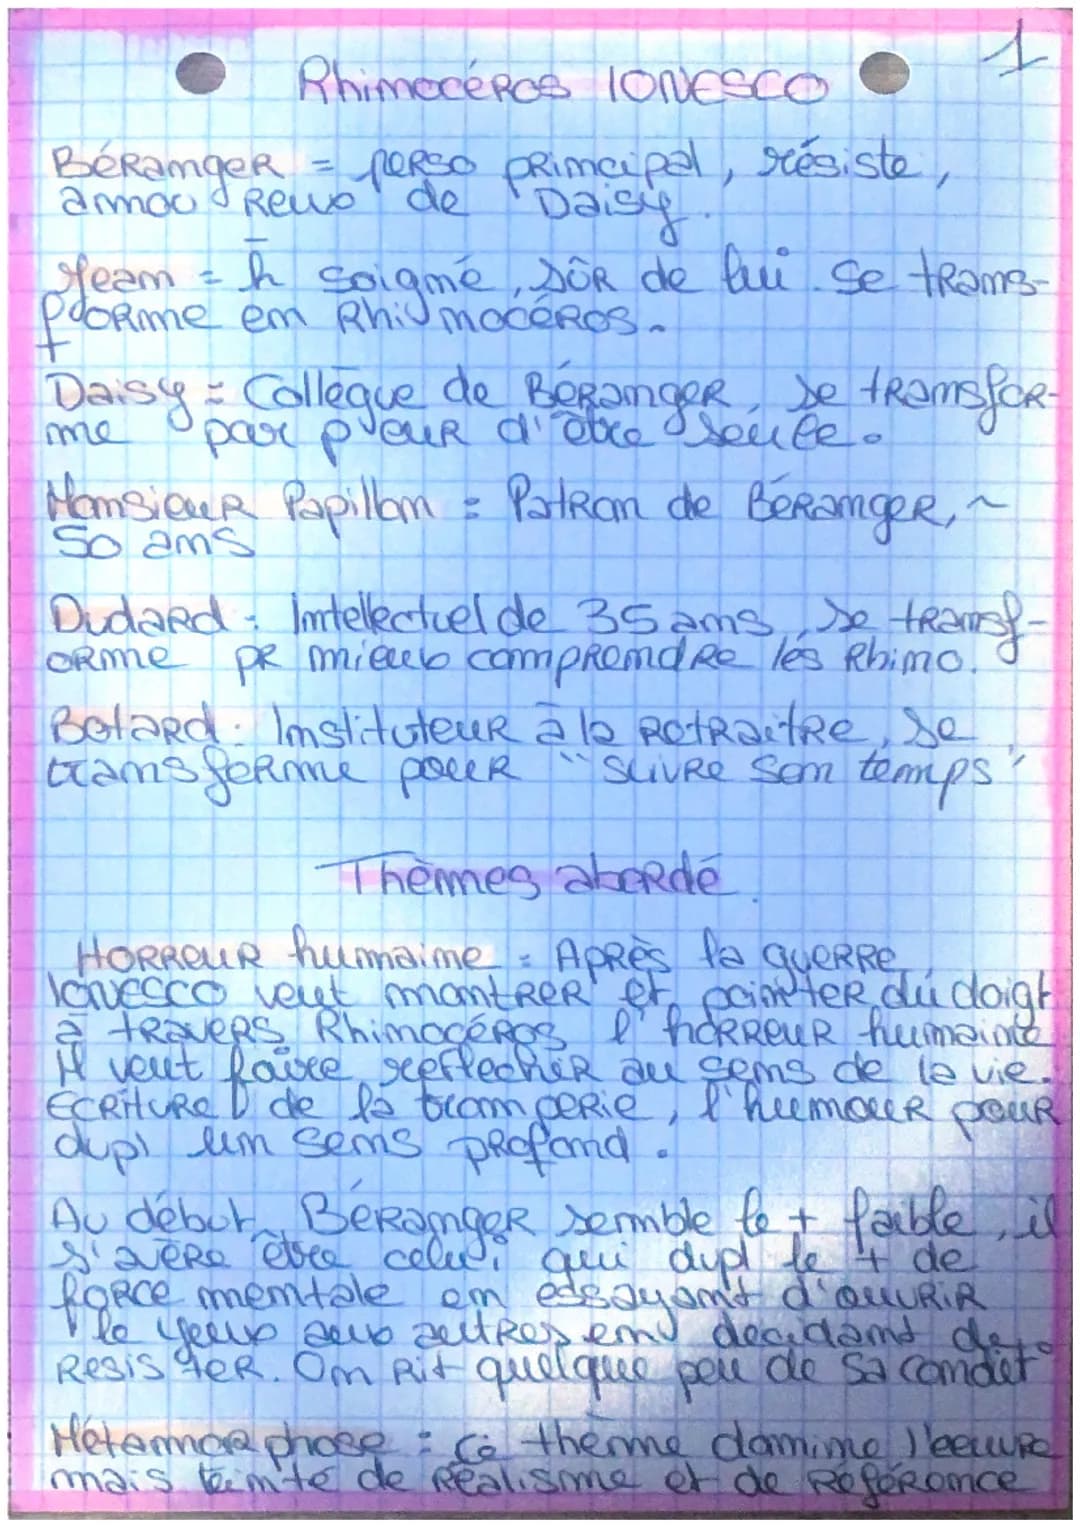 1
Rhinocéros IONESCO
Béranger = perso principal, résiste,
amoureux de Daisy.
Jean = h soigné, sûr de lui. Se trans-
forme en Rhinocéros.
Daisy = Collègue de Béranger, se transfor-
me par peur d'être seule.
Monsieur Papillon = Patron de Béranger, ~
50 ans
Dudard = Intellectuel de 35 ans, se transf-
orme pr mieux comprendre les Rhino.
Botard = Instituteur à la retraitre, se
transforme pour "suivre son temps"
Thèmes abordé
HORREUR humaine = Après la guerre,
Ionesco veut montrer et pointer du doigt
à travers Rhinocéros l'horreur humaine
Il veut faire reflechir au sens de la vie.
Ecriture de la tromperie, l'humour pour
dvpl un sens profond.
Au début, Béranger semble le + faible, il
s'avère être celui qui dvpl le + de
force mentale en essayant d'ouvrir
le yeux aux autres en decidant de
resister. On rit quelque peu de sa condit°
Métamorphose : Ce thème domine l'oeuvre
mais teinté de réalisme et de référence